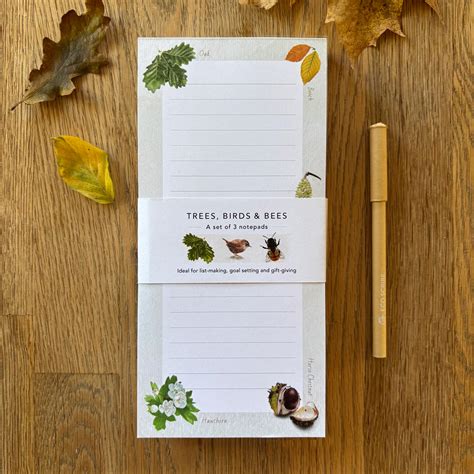 Oak
Beech
TREES, BIRDS & BEES
A set of 3 notepads
Ideal for list-making, goal setting and gift-giving
Horse Chestnut
Hawthorn